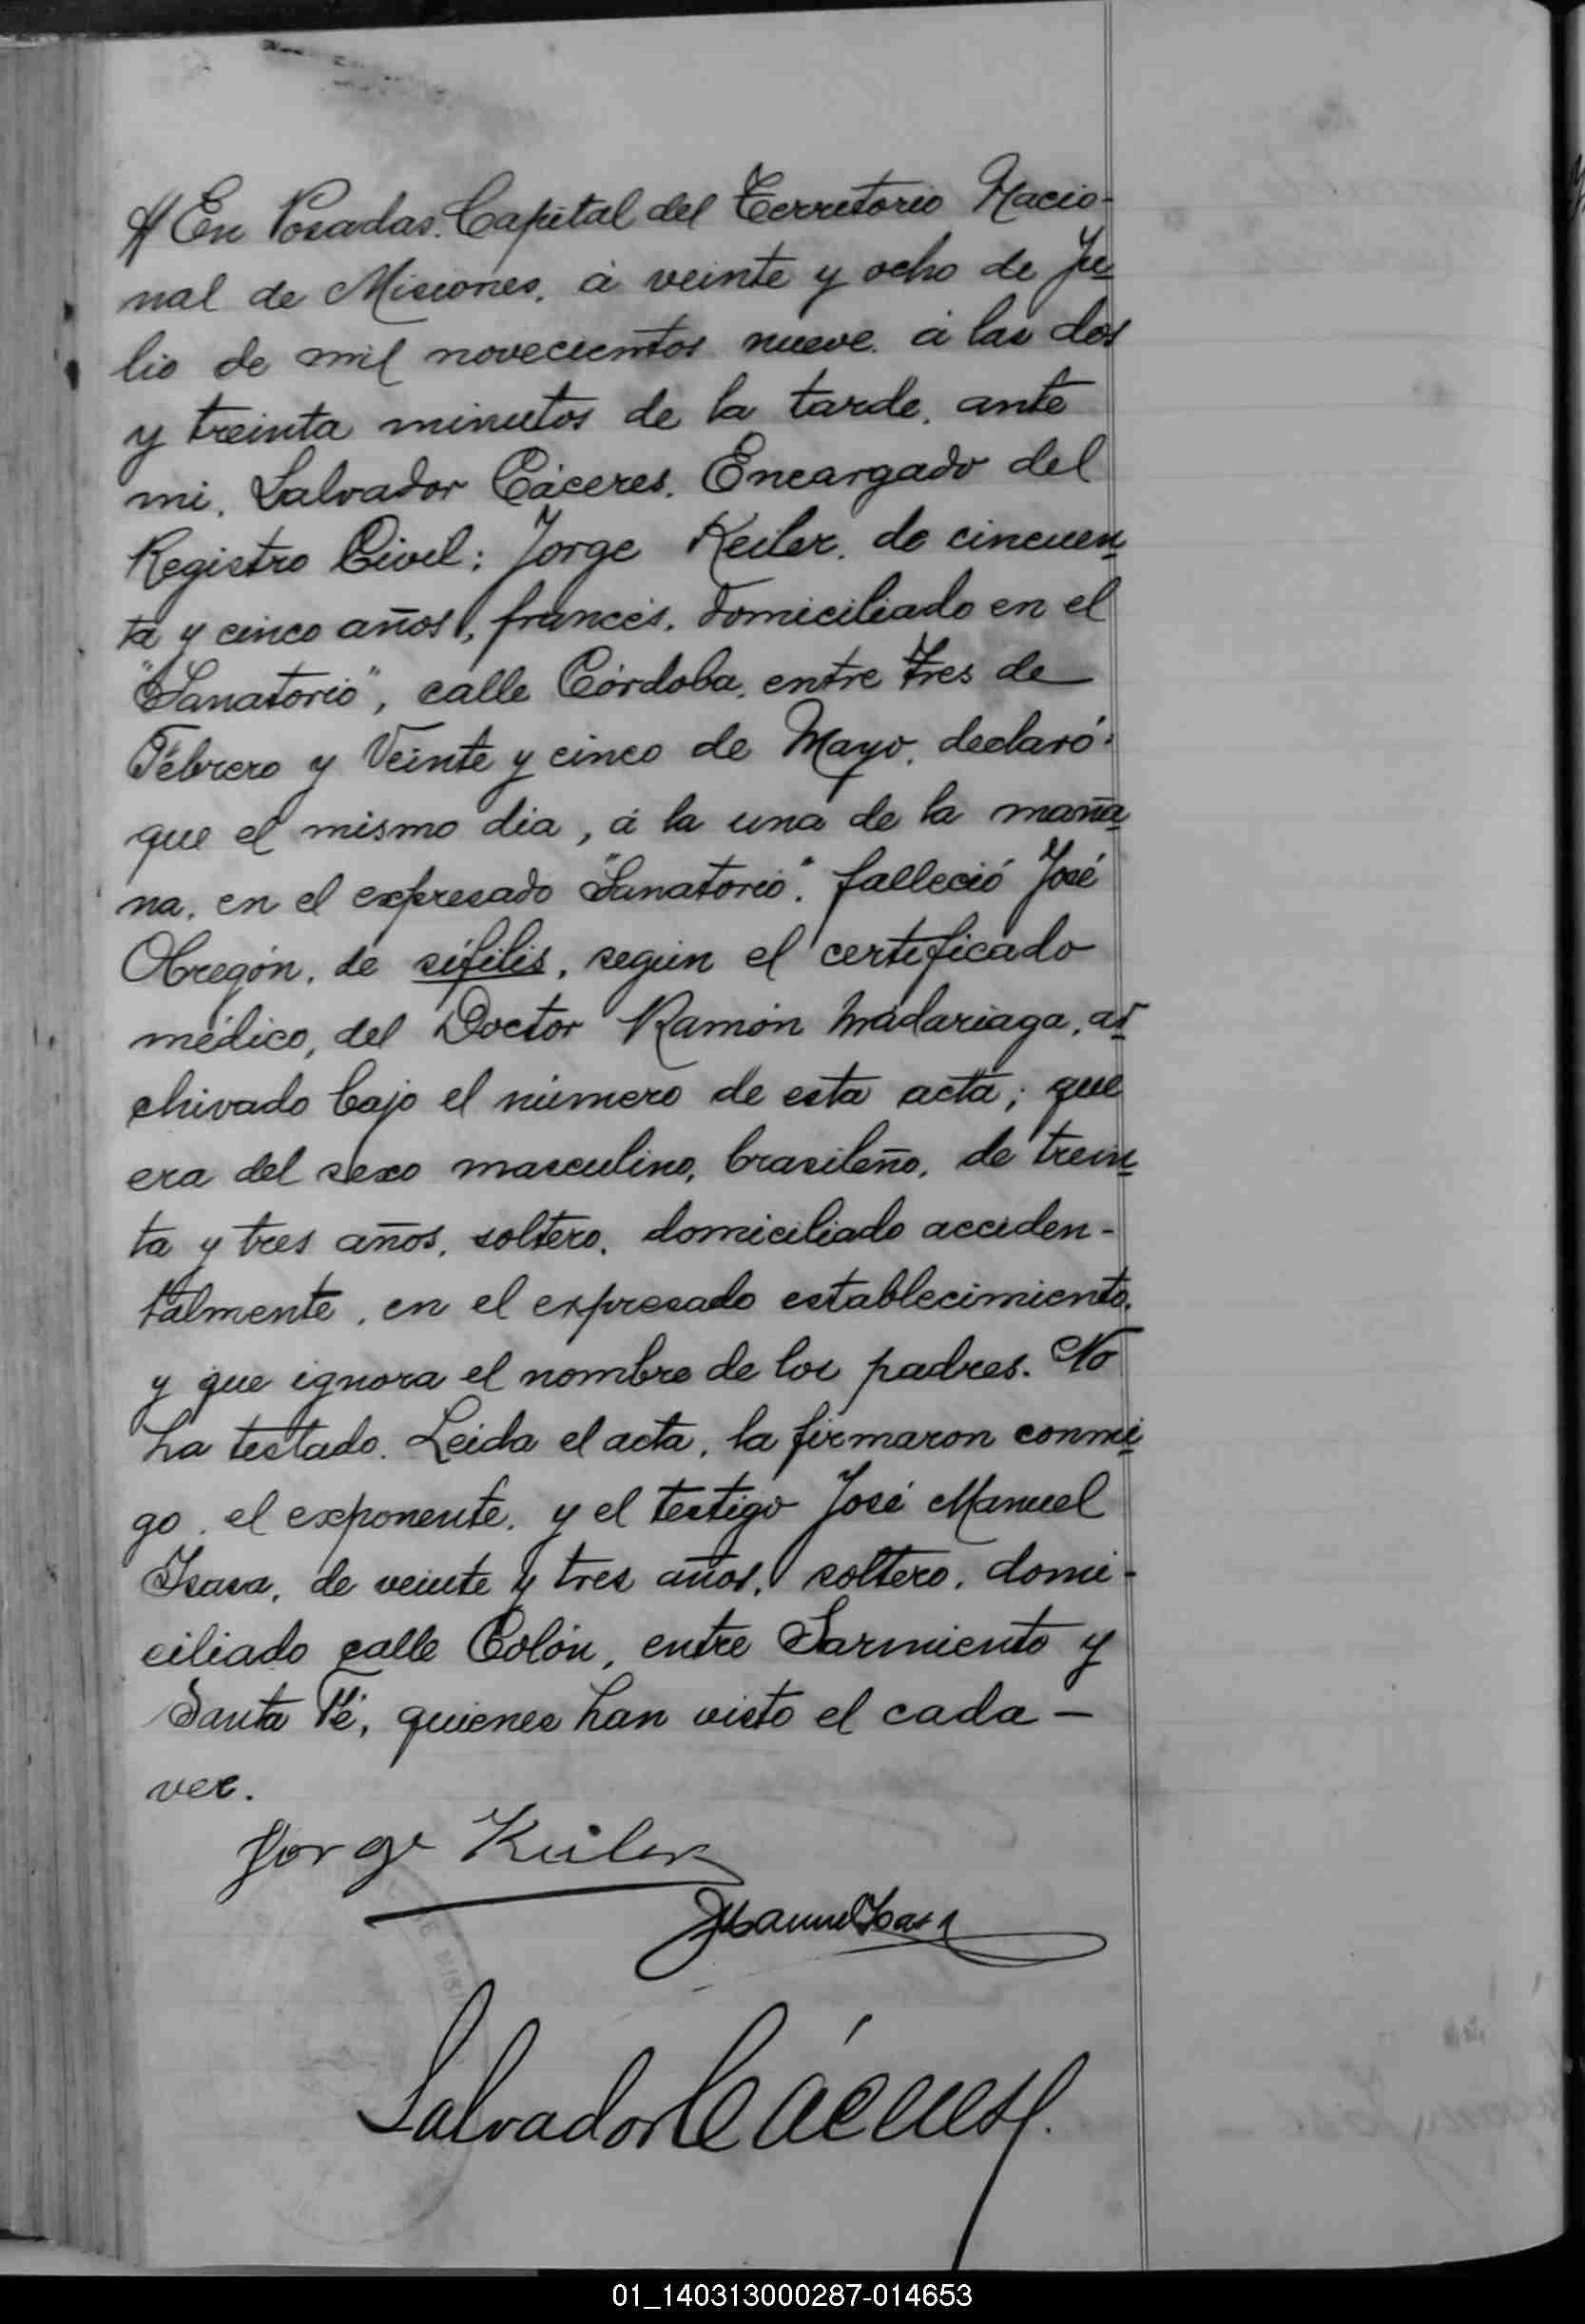 En Posadas. Capital del Territorio Nacio-
nal de Misiones, á veinte y ocho de Ju-
lio de mil novecientos nueve. á las dos
y treinta minutos de la tarde, ante
mi, Salvador Cáceres. Encargado del
Registro Civil: Jorge Keiler, de cincuen-
ta y cinco años, francés, domiciliado en el
"Sanatorio", calle Córdoba, entre Tres de
Febrero y Veinte y cinco de Mayo, declaró:
que el mismo dia, á la una de la maña-
na, en el expresado "Sanatorio", falleció José
Obregón, de sífilis, según el certificado
médico, del Doctor Ramón Madariaga, ar-
chivado bajo el número de esta acta; que
era del sexo masculino, brasileño, de trein-
ta y tres años, soltero, domiciliado acciden-
talmente, en el expresado establecimiento,
y que ignora el nombre de los padres. No
ha testado. Leida el acta, la firmaron conmi-
go, el exponente, y el testigo José Manuel
Isasa, de veinte y tres años, soltero, domi-
ciliado calle Colón, entre Sarmiento y
Santa Fé, quienes han visto el cada-
ver.
Jorge Keiler
JManuel Isasa
Salvador Cáceres
01_140313000287-014653